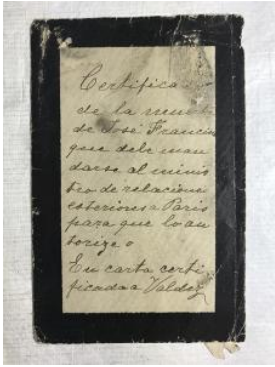 Certifica
de la muerte
de José Francis
que debe man
darse al minis
tro de relacione
esteriores a Paris
para que lo au
torize o
En carta certi
ficada a Valdez